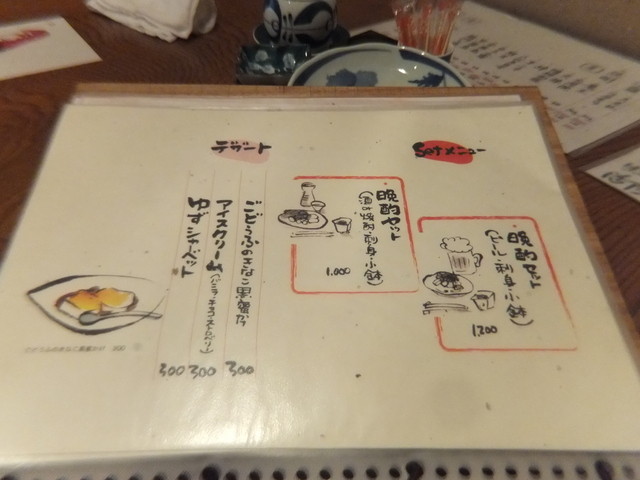 Setメニュー
晩酌セット
(ビール・刺身・小鉢)
1,200
晩酌セット
(酒or焼酎・刺身・小鉢)
1,000
デザート
ごどうふのきなこ黒蜜かけ
300
アイスクリーム(バニラ・チョコ・ストロベリー)
300
ゆずシャーベット
300